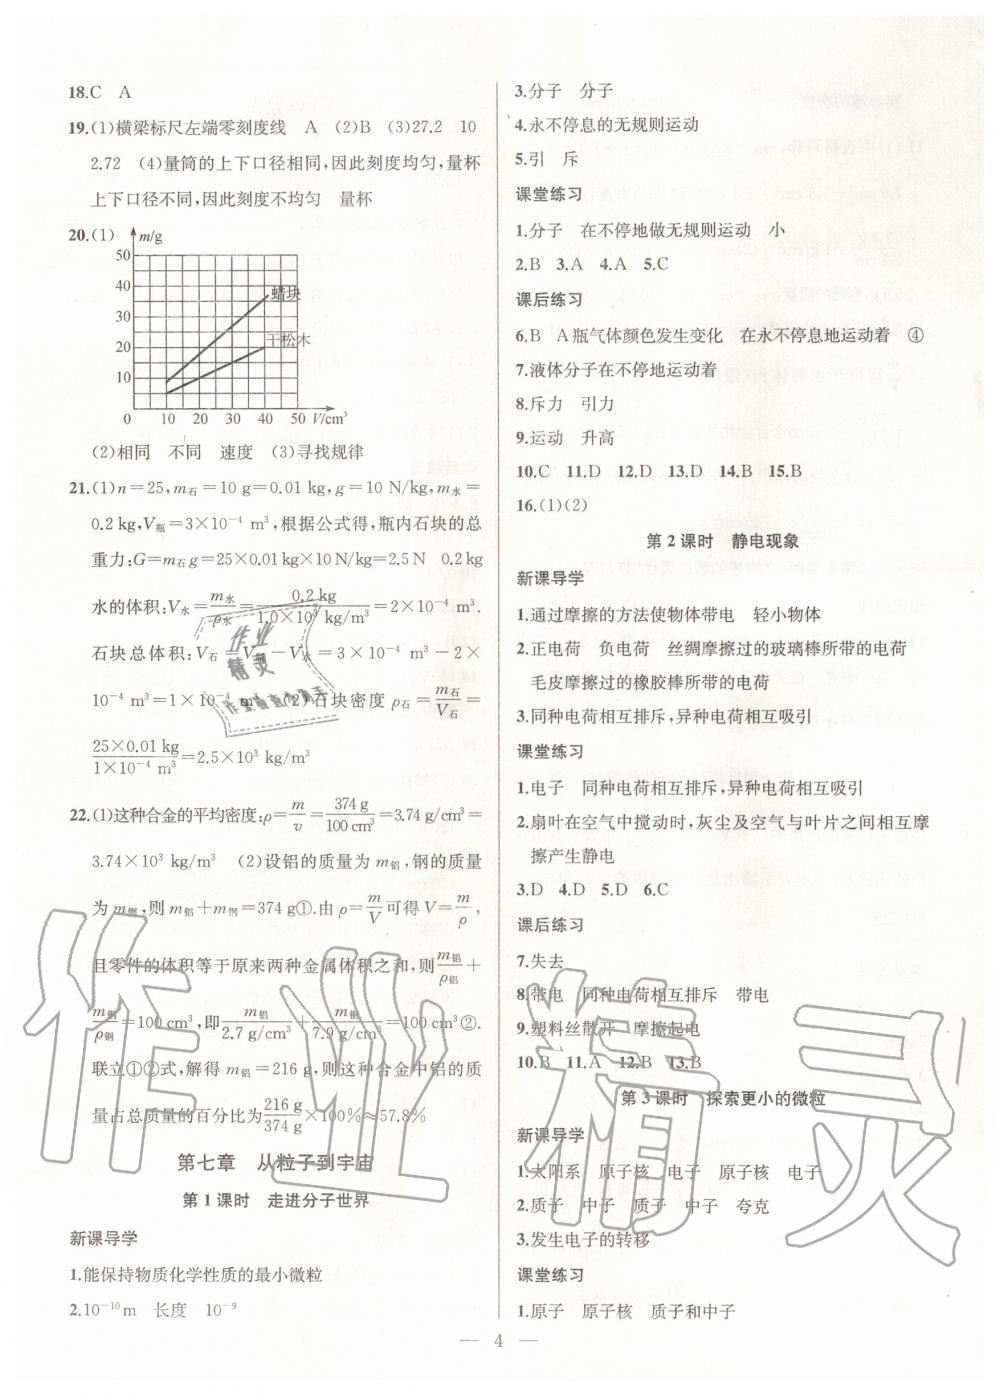 18.C　A
19.(1)横梁标尺左端零刻度线　A　(2)B　(3)27.2　10
2.72　(4)量筒的上下口径相同,因此刻度均匀,量杯
上下口径不同,因此刻度不均匀　量杯
20.(1)
m/g
50
40
30
20
10
蜡块
干松木
0　10　20　30　40　50　V/cm³
(2)相同　不同　速度　(3)寻找规律
21.(1)n=25,m石=10 g=0.01 kg,g=10 N/kg,m水=
0.2 kg,V瓶=3×10⁻⁴ m³,根据公式得,瓶内石块的总
重力:G=m石g=25×0.01 kg×10 N/kg=2.5 N　0.2 kg
水的体积:V水=m水/ρ水=0.2 kg/1.0×10³ kg/m³=2×10⁻⁴ m³.
石块总体积:V石=V瓶-V水=3×10⁻⁴ m³-2×
10⁻⁴ m³=1×10⁻⁴ m³　(2)石块密度 ρ石=m石/V石=
25×0.01 kg/1×10⁻⁴ m³=2.5×10³ kg/m³
22.(1)这种合金的平均密度:ρ=m/v=374 g/100 cm³=3.74 g/cm³=
3.74×10³ kg/m³　(2)设铝的质量为 m铝,钢的质量
为 m钢,则 m铝+m钢=374 g①.由 ρ=m/V可得 V=m/ρ,
且零件的体积等于原来两种金属体积之和,则m铝/ρ铝+
m钢/ρ钢=100 cm³,即m铝/2.7 g/cm³+m钢/7.9 g/cm³=100 cm³②.
联立①②式,解得 m铝=216 g,则这种合金中铝的质
量占总质量的百分比为216 g/374 g×100%≈57.8%
第七章　从粒子到宇宙
第 1 课时　走进分子世界
新课导学
1.能保持物质化学性质的最小微粒
2.10⁻¹⁰m　长度　10⁻⁹
3.分子　分子
4.永不停息的无规则运动
5.引　斥
课堂练习
1.分子　在不停地做无规则运动　小
2.B　3.A　4.A　5.C
课后练习
6.B　A 瓶气体颜色发生变化　在永不停息地运动着　④
7.液体分子在不停地运动着
8.斥力　引力
9.运动　升高
10.C　11.D　12.D　13.D　14.B　15.B
16.(1)(2)
第 2 课时　静电现象
新课导学
1.通过摩擦的方法使物体带电　轻小物体
2.正电荷　负电荷　丝绸摩擦过的玻璃棒所带的电荷
毛皮摩擦过的橡胶棒所带的电荷
3.同种电荷相互排斥,异种电荷相互吸引
课堂练习
1.电子　同种电荷相互排斥,异种电荷相互吸引
2.扇叶在空气中搅动时,灰尘及空气与叶片之间相互摩
擦产生静电
3.D　4.D　5.D　6.C
课后练习
7.失去
8.带电　同种电荷相互排斥　带电
9.塑料丝散开　摩擦起电
10.B　11.A　12.B　13.B
第 3 课时　探索更小的微粒
新课导学
1.太阳系　原子核　电子　原子核　电子
2.质子　中子　质子　中子　夸克
3.发生电子的转移
课堂练习
1.原子　原子核　质子和中子
— 4 —
作业精灵
作业
精灵